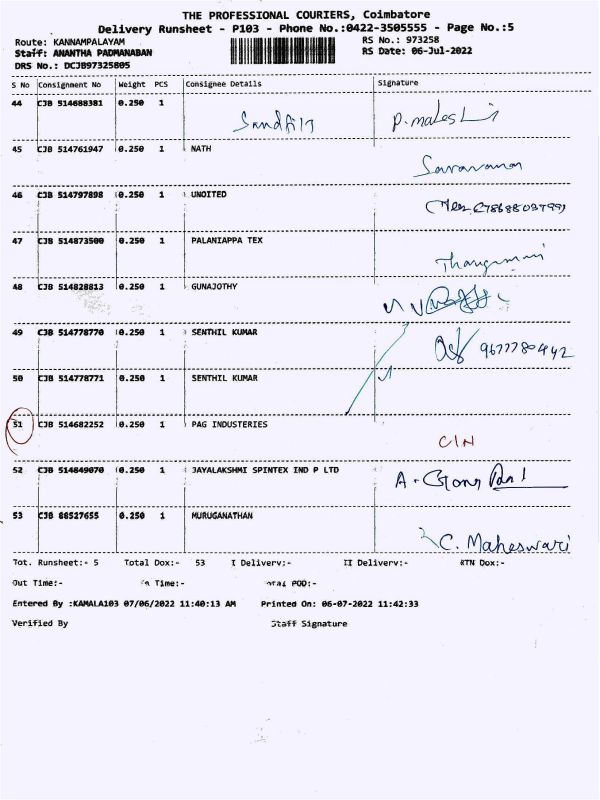 THE PROFESSIONAL COURIERS, Coimbatore
Delivery Runsheet - P103 - Phone No.:0422-3505555 - Page No.:5
Route: KANNAMPALAYAM RS No.: 973258
Staff: ANANTHA PADMANABAN RS Date: 06-Jul-2022
DRS No.: DCJB97325805
S No Consignment No Weight PCS Consignee Details Signature
44 CJB 514688381 0.250 1 P. males
45 CJB 514761947 0.250 1 NATH Saravanan
46 CJB 514797898 0.250 1 UNOITED
47 CJB 514873500 0.250 1 PALANIAPPA TEX Thangamani
48 CJB 514828813 0.250 1 GUNAJOTHY
49 CJB 514778770 0.250 1 SENTHIL KUMAR 9677780442
50 CJB 514778771 0.250 1 SENTHIL KUMAR
51 CJB 514682252 0.250 1 PAG INDUSTERIES CIN
52 CJB 514849070 0.250 1 JAYALAKSHMI SPINTEX IND P LTD A.
53 CJB 88527655 0.250 1 MURUGANATHAN C. Maheswari
Tot. Runsheet:- 5 Total Dox:- 53 I Delivery:- II Delivery:- RTN Dox:-
Out Time:- In Time:- Total POD:-
Entered By :KAMALA103 07/06/2022 11:40:13 AM Printed On: 06-07-2022 11:42:33
Verified By Staff Signature